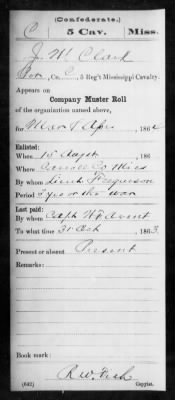 (Confederate.)
C 5 Cav. Miss.
J. W. Clark
Co. C, 5 Reg't Mississippi Cavalry.
Appears on
Company Muster Roll
of the organization named above,
for Mar & Apr, 1864
Enlisted:
When 15 Augst, 186
Where Carroll Co Miss
By whom Lieut Ferguson
Period 3 yrs or the war
Last paid:
By whom Capt
To what time 31 Oct, 1863
Present or absent Present
Remarks:
Book mark:
R. W. Fish
(642) Copyist.